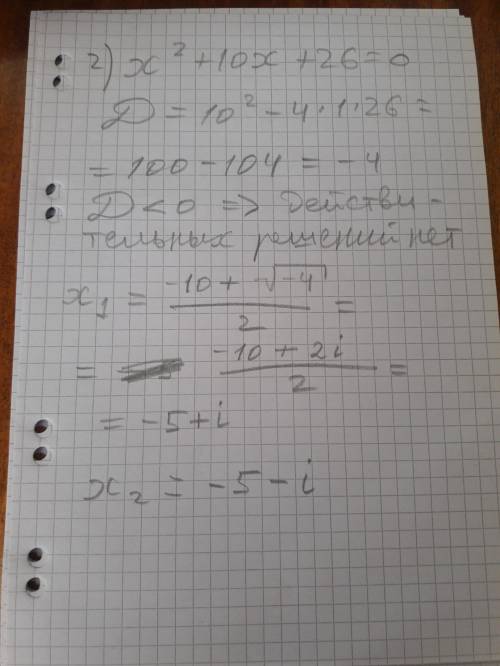 2) x² + 10x + 26 = 0
D = 10² - 4·1·26 =
= 100 - 104 = -4
D < 0 => действи-
тельных решений нет
x₁ = (-10 + √-4)/2 =
= (-10 + 2i)/2 =
= -5 + i
x₂ = -5 - i